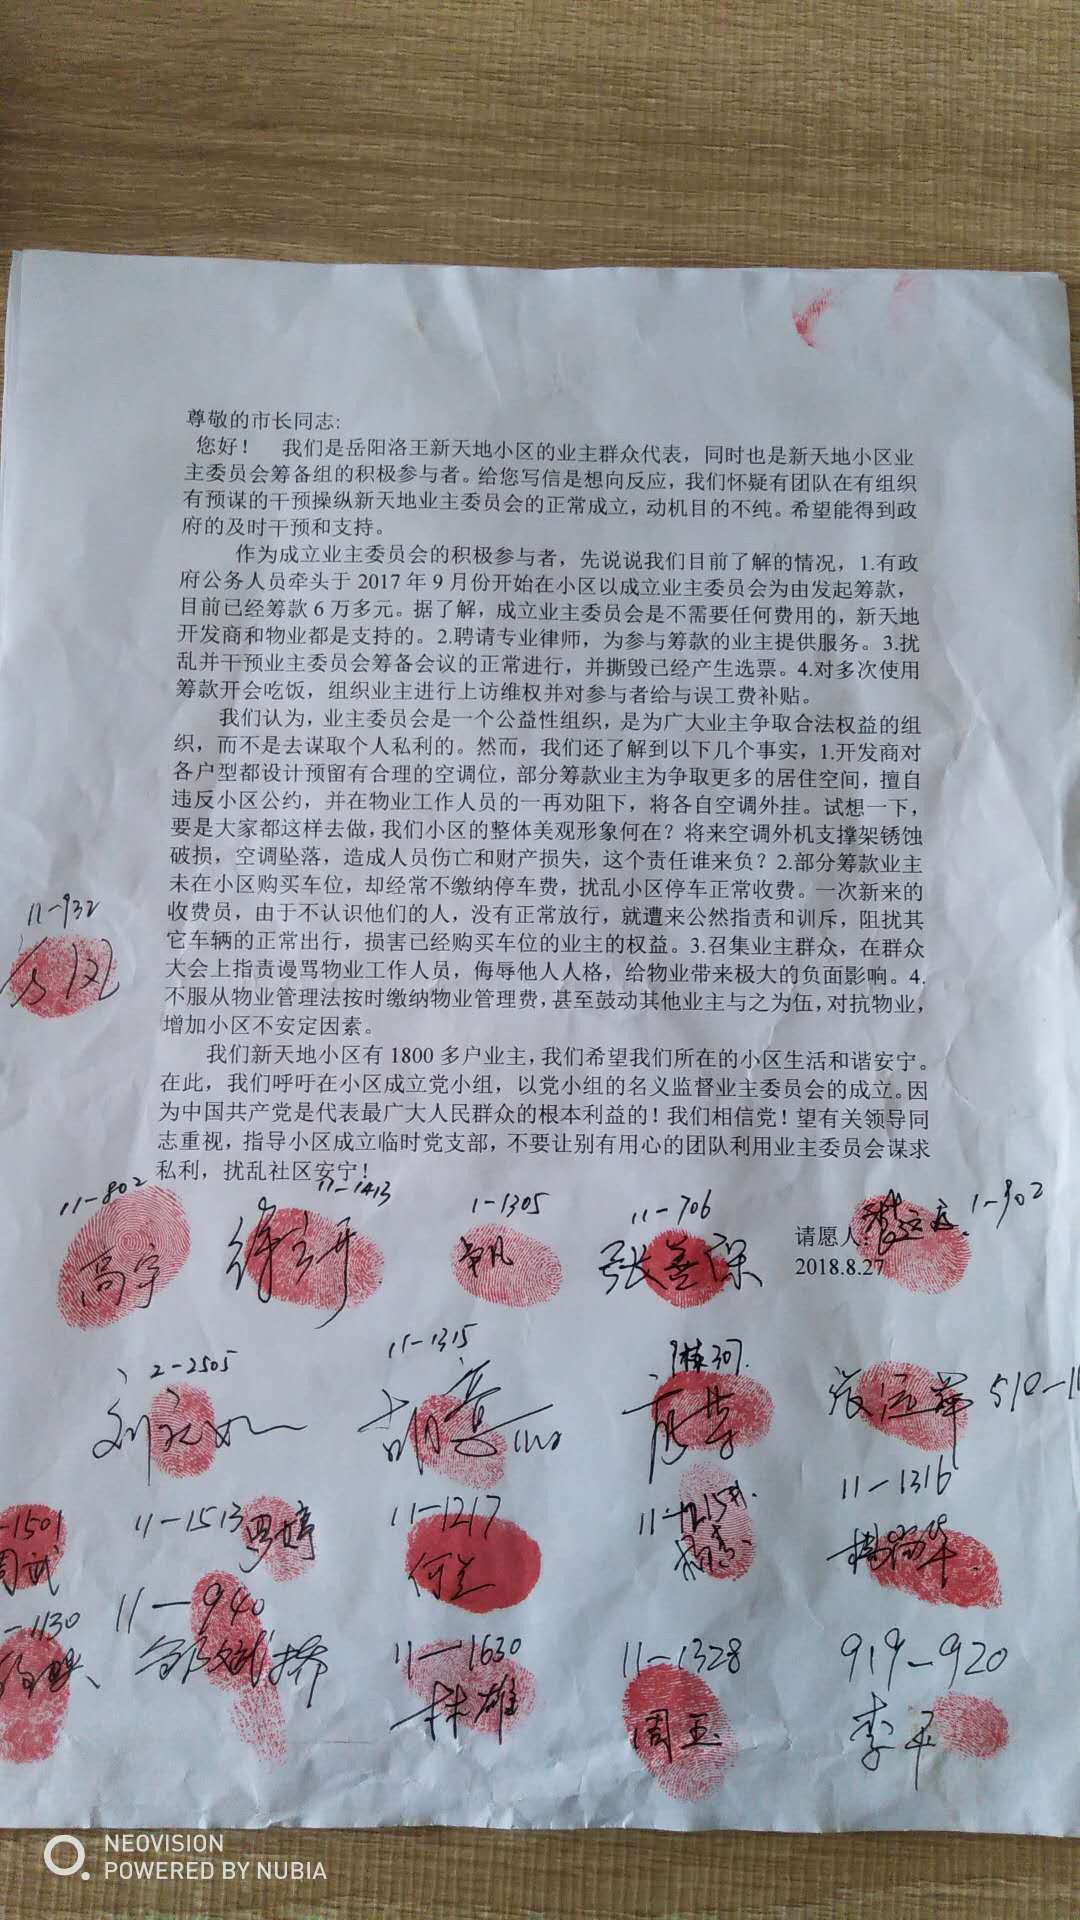 尊敬的市长同志:
您好！ 我们是岳阳洛王新天地小区的业主群众代表，同时也是新天地小区业
主委员会筹备组的积极参与者。给您写信是想向反应，我们怀疑有团队在有组织
有预谋的干预操纵新天地业主委员会的正常成立，动机目的不纯。希望能得到政
府的及时干预和支持。
作为成立业主委员会的积极参与者，先说说我们目前了解的情况，1.有政
府公务人员牵头于 2017 年 9 月份开始在小区以成立业主委员会为由发起筹款，
目前已经筹款 6 万多元。据了解，成立业主委员会是不需要任何费用的，新天地
开发商和物业都是支持的。2.聘请专业律师，为参与筹款的业主提供服务。3.扰
乱并干预业主委员会筹备会议的正常进行，并撕毁已经产生选票。4.对多次使用
筹款开会吃饭，组织业主进行上访维权并对参与者给与误工费补贴。
我们认为，业主委员会是一个公益性组织，是为广大业主争取合法权益的组
织，而不是去谋取个人私利的。然而，我们还了解到以下几个事实，1.开发商对
各户型都设计预留有合理的空调位，部分筹款业主为争取更多的居住空间，擅自
违反小区公约，并在物业工作人员的一再劝阻下，将各自空调外挂。试想一下，
要是大家都这样去做，我们小区的整体美观形象何在？将来空调外机支撑架锈蚀
破损，空调坠落，造成人员伤亡和财产损失，这个责任谁来负？2.部分筹款业主
未在小区购买车位，却经常不缴纳停车费，扰乱小区停车正常收费。一次新来的
收费员，由于不认识他们的人，没有正常放行，就遭来公然指责和训斥，阻扰其
它车辆的正常出行，损害已经购买车位的业主的权益。3.召集业主群众，在群众
大会上指责谩骂物业工作人员，侮辱他人人格，给物业带来极大的负面影响。4.
不服从物业管理法按时缴纳物业管理费，甚至鼓动其他业主与之为伍，对抗物业，
增加小区不安定因素。
我们新天地小区有 1800 多户业主，我们希望我们所在的小区生活和谐安宁。
在此，我们呼吁在小区成立党小组，以党小组的名义监督业主委员会的成立。因
为中国共产党是代表最广大人民群众的根本利益的！我们相信党！望有关领导同
志重视，指导小区成立临时党支部，不要让别有用心的团队利用业主委员会谋求
私利，扰乱社区安宁！
11-932
11-802 11-1413 1-1305 11-706 1-902
高宇 张善保 请愿人:
2018.8.27
2-2505 11-1315 9栋307.
510-1
-1501 11-1513 罗婷 11-1217 11-1316
周武 何兰
-1130 11-940 11-1630 11-1328 919-920
林雄 周玉 李平
NEOVISION
POWERED BY NUBIA